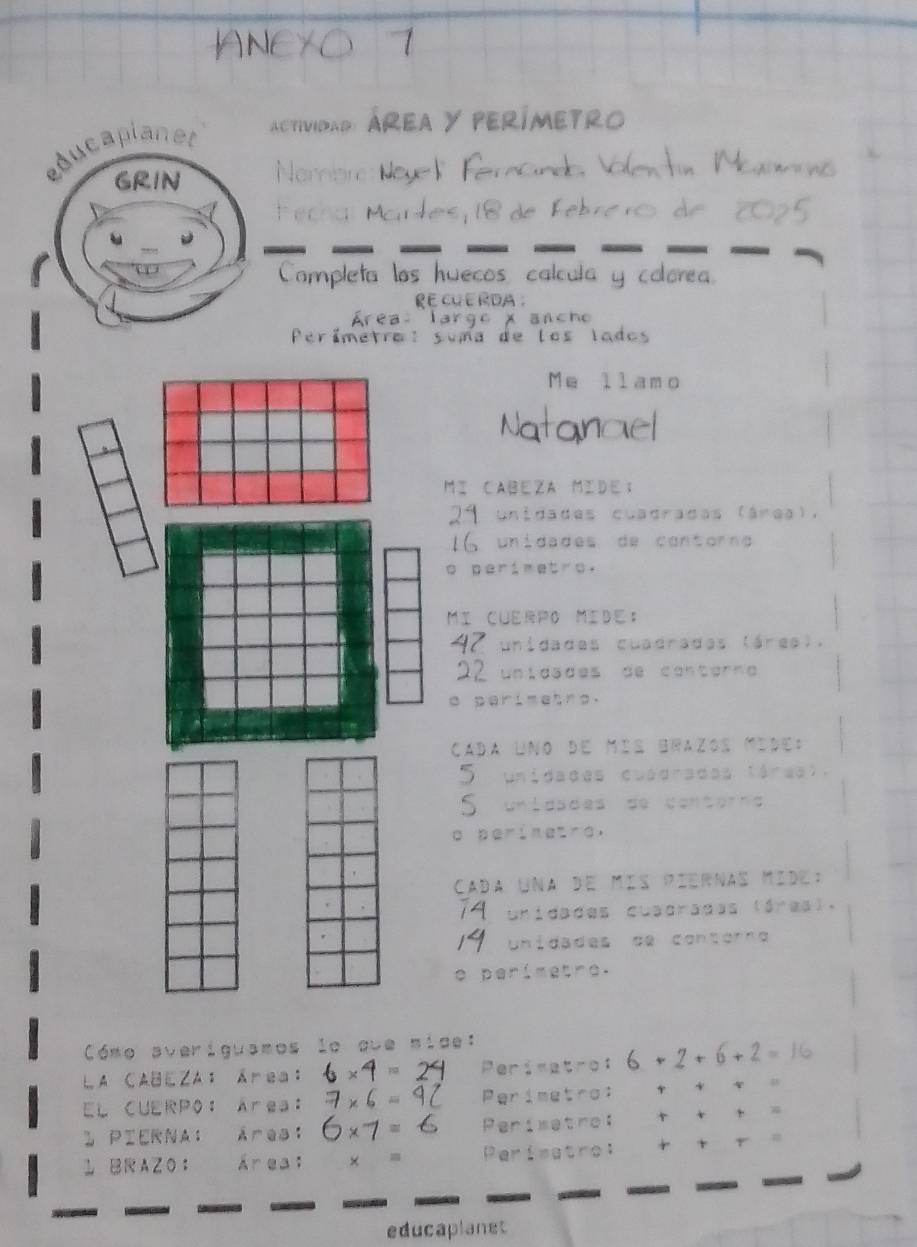 ANEXO 1
educaplanet
GRIN
ACTIVIDAD ÁREA Y PERÍMETRO
Nombre: Nayeli Fernanda Valentin
Fecha: Martes, 18 de Febrero de 2025
Completa los huecos, calcula y colorea.
RECUERDA:
Área: largo x ancho
Perímetro: suma de los lados
Me llamo
Natanael
MI CABEZA MIDE:
24 unidades cuadradas (área).
16 unidades de contorno
o perímetro.
MI CUERPO MIDE:
42 unidades cuadradas (área).
22 unidades de contorno
o perímetro.
CADA UNO DE MIS BRAZOS MIDE:
5 unidades cuadradas (área).
5 unidades de contorno
o perímetro.
CADA UNA DE MIS PIERNAS MIDE:
14 unidades cuadradas (área).
14 unidades de contorno
o perímetro.
Cómo averiguamos lo que mide:
LA CABEZA: Área: 6 x 4 = 24 Perímetro: 6 + 2 + 6 + 2 = 16
EL CUERPO: Área: 7 x 6 = 42 Perímetro: + + + =
1 PIERNA: Área: 6 x 7 = 6 Perímetro: + + + =
1 BRAZO: Área: x = Perímetro: + + + =
educaplanet